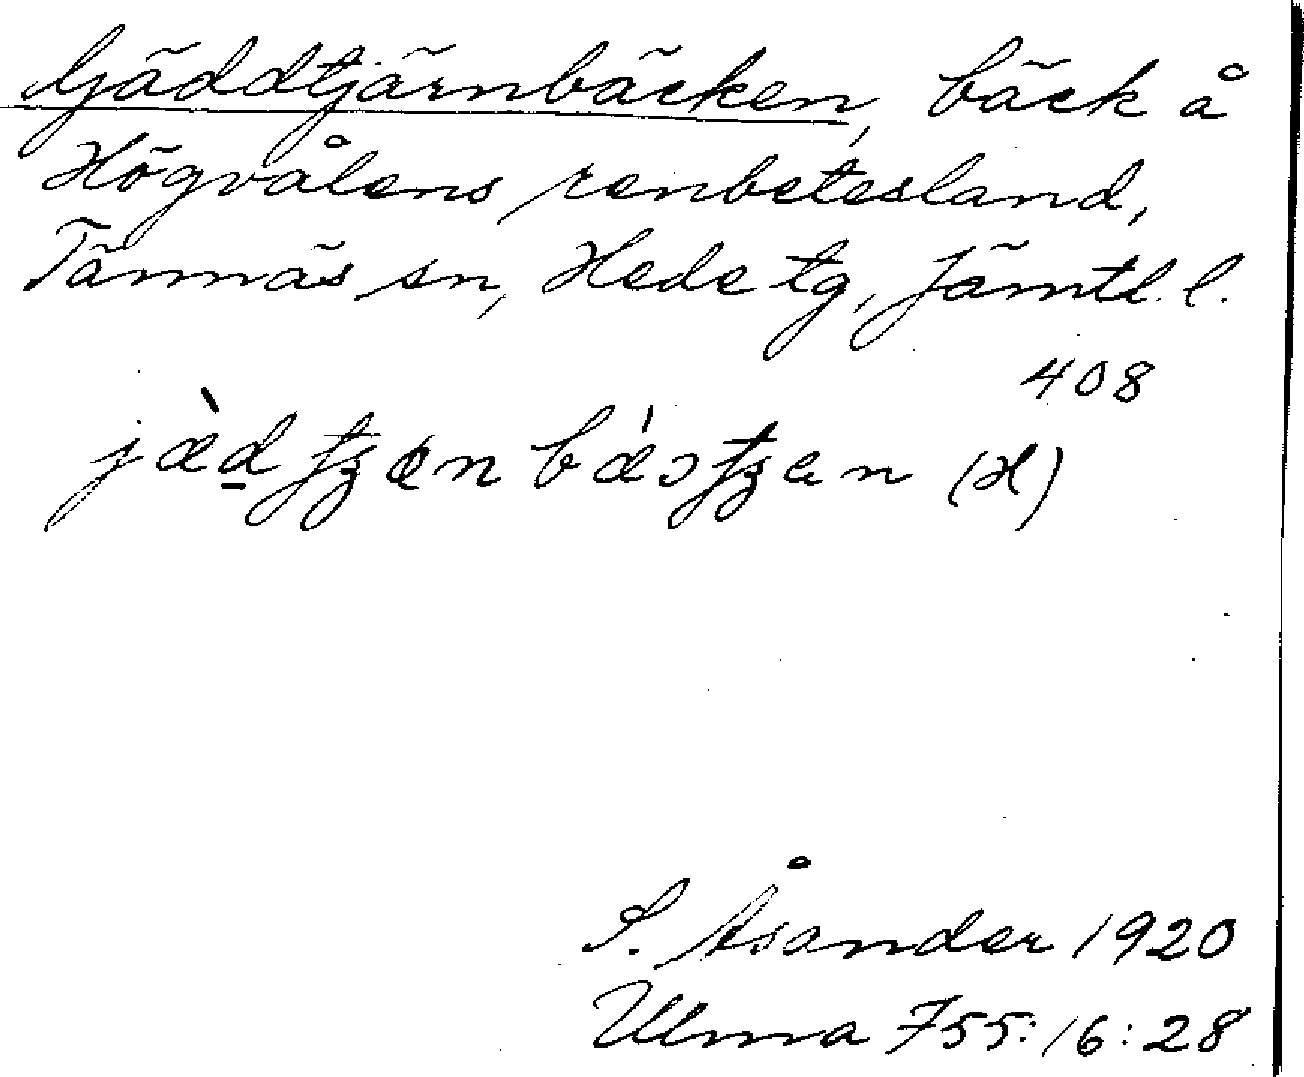 Gäddtjärnbäcken, bäck å
Högvålens renbetesland,
Tännäs sn, Hede tg, Jämtl. l.
408
(H)
S. Åsander 1920
Ulma 755:16:28